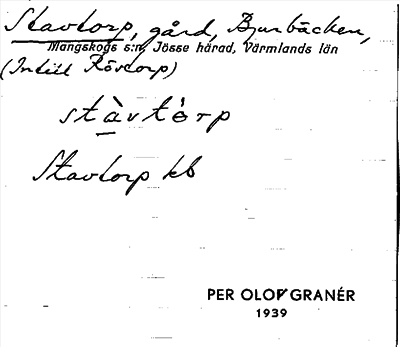 Stavtorp, gård, Bjurbäcken,
Mangskogs s:n, Jösse härad, Värmlands län
(Intill Rövtorp)
stàvtórp
Stavtorp kb
PER OLOF GRANÉR
1939